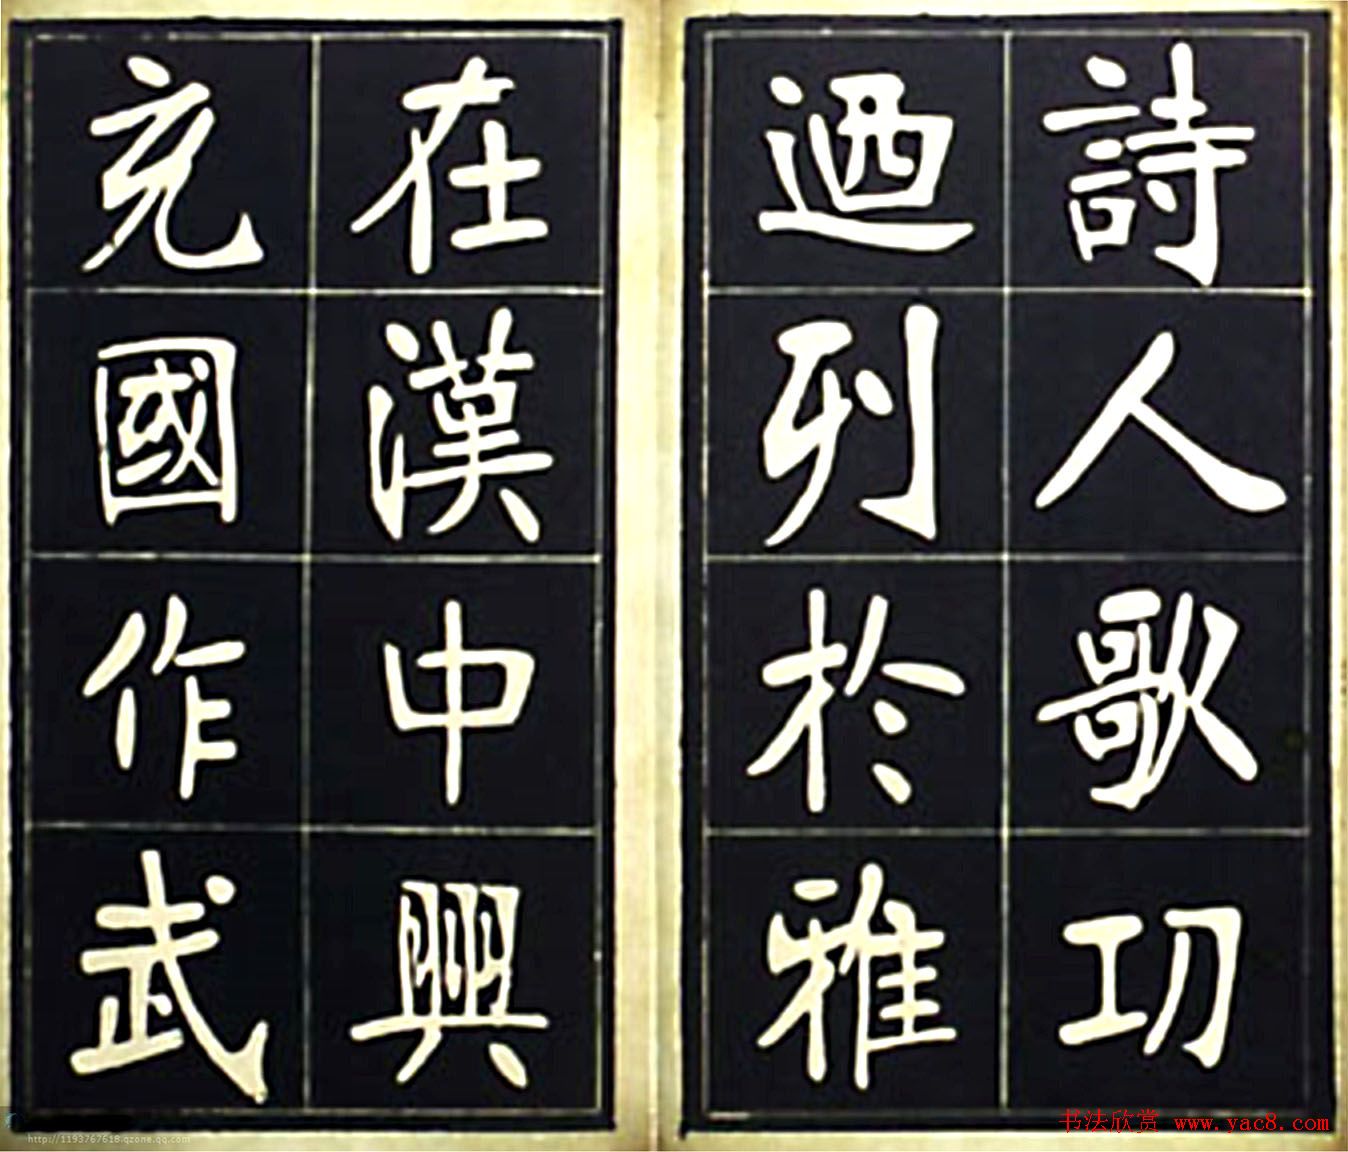 詩人歌功
迺列於雅
在漢中興
充國作武
书法欣赏 www.yac8.com
http://1193767618.qzone.qq.com